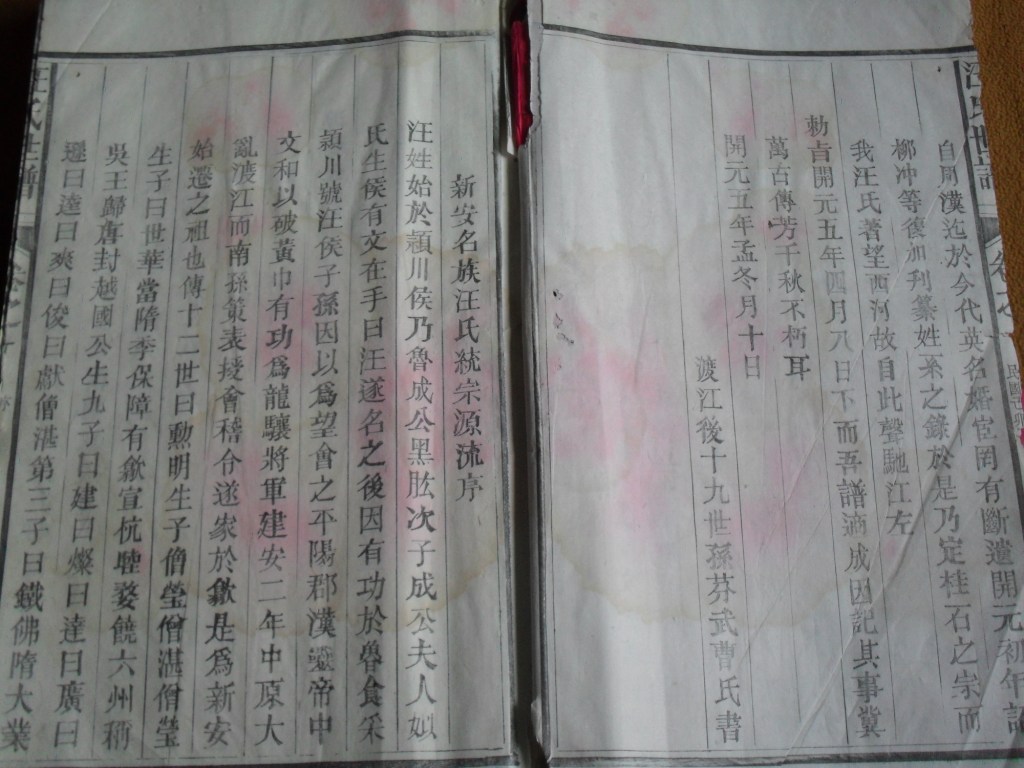 汪氏世譜
自周漢迄於今代英名婚宦罔有斷遺開元初年詔
柳冲等復加刋纂姓系之錄於是乃定桂石之宗而
我汪氏著望西河故自此聲馳江左
勅旨開元五年四月八日下而吾譜適成因記其事冀
萬古傳芳千秋不朽耳
開元五年孟冬月十日
渡江後十九世孫芬武曹氏書
新安名族汪氏統宗源流序
汪姓始於潁川侯乃魯成公黑肱次子成公夫人姒
氏生侯有文在手曰汪遂名之後因有功於魯食采
潁川號汪侯子孫因以爲望會之平陽郡漢獻帝中
文和以破黃巾有功爲龍驤將軍建安二年中原大
亂渡江而南孫策表授會稽令遂家於歙是爲新安
始遷之祖也傳十二世曰勲明生子僧瑩僧湛僧瑩
生子曰世華當隋季保障有歙宣杭睦婺饒六州稱
吳王歸唐封越國公生九子曰建曰燦曰達曰廣曰
遜曰逵曰爽曰俊曰獻僧湛第三子曰鐵佛隋大業
汪氏世譜